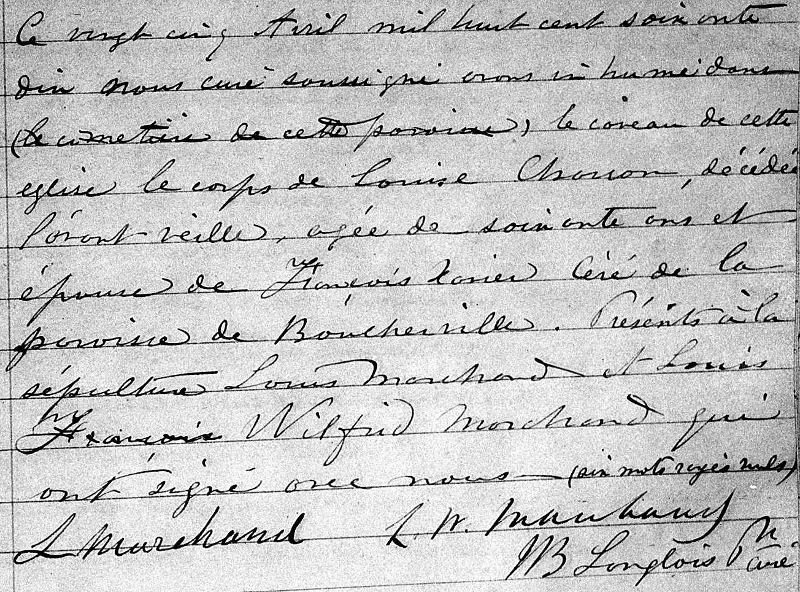 Ce vingt cinq Avril mil huit cent soixante
dix nous curé soussigné avons inhumé dans
(le cimetière de cette paroisse) le caveau de cette
église le corps de Louise Charron, décédée
l'avant-veille, agée de soixante ans et
épouse de François Xavier Céré de la
paroisse de Boucherville. Présents à la
sépulture Louis Marchand et Louis
François Wilfrid Marchand qui
ont signé avec nous (six mots rayés nuls)
L Marchand L. W. Marchand
JB Langlois Ptre
curé